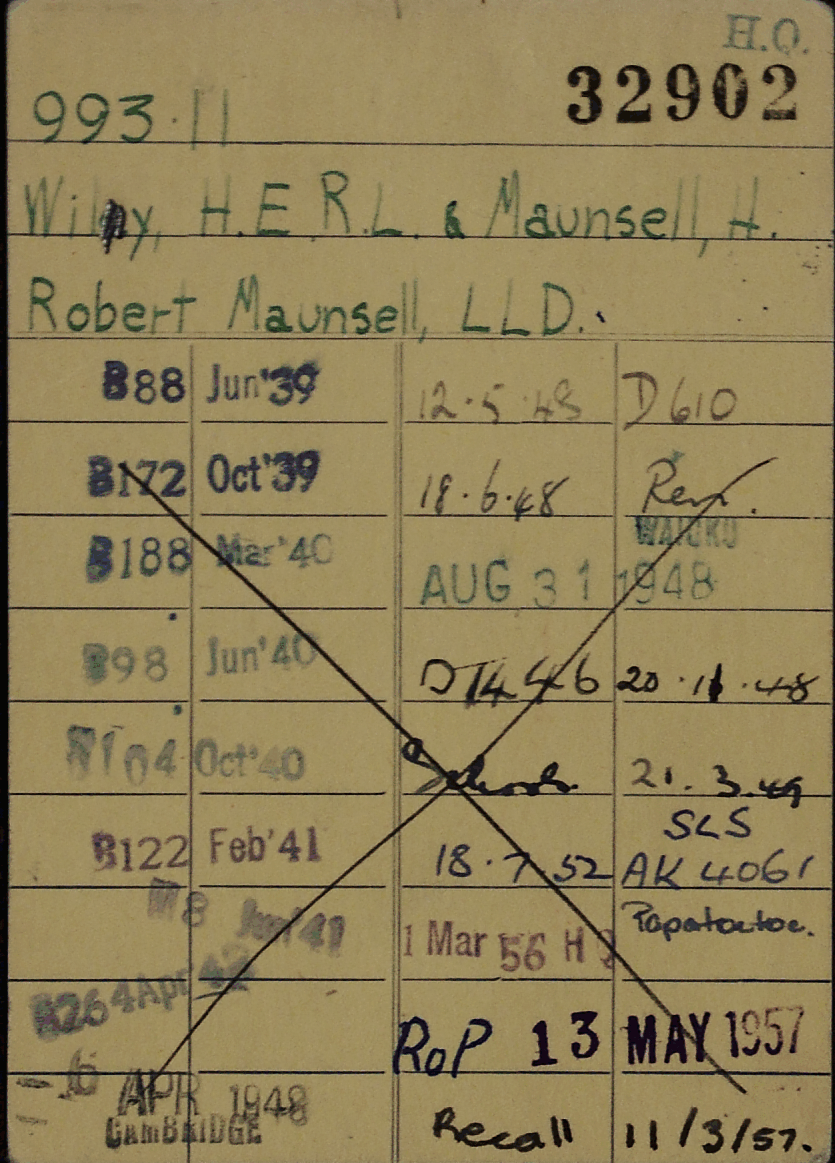 H.Q.
32902
993.11
Wily, H.E.R.L. & Maunsell, H.
Robert Maunsell, LLD.
B88 Jun'39 12.5.48 D610
B172 Oct'39 18.6.48 Ren.
WAIUKU
B188 Mar'40 AUG 31 1948
B98 Jun'40 D1446 20.11.48
B104 Oct'40 Schools 21.3.49
SLS
B122 Feb'41 18.7.52 AK 4061
M8 Jun'41 1 Mar 56 H Q Papatoetoe.
B264 Apr'42
RoP 13 MAY 1957
APR 1948
CAMBRIDGE Recall 11/3/57.